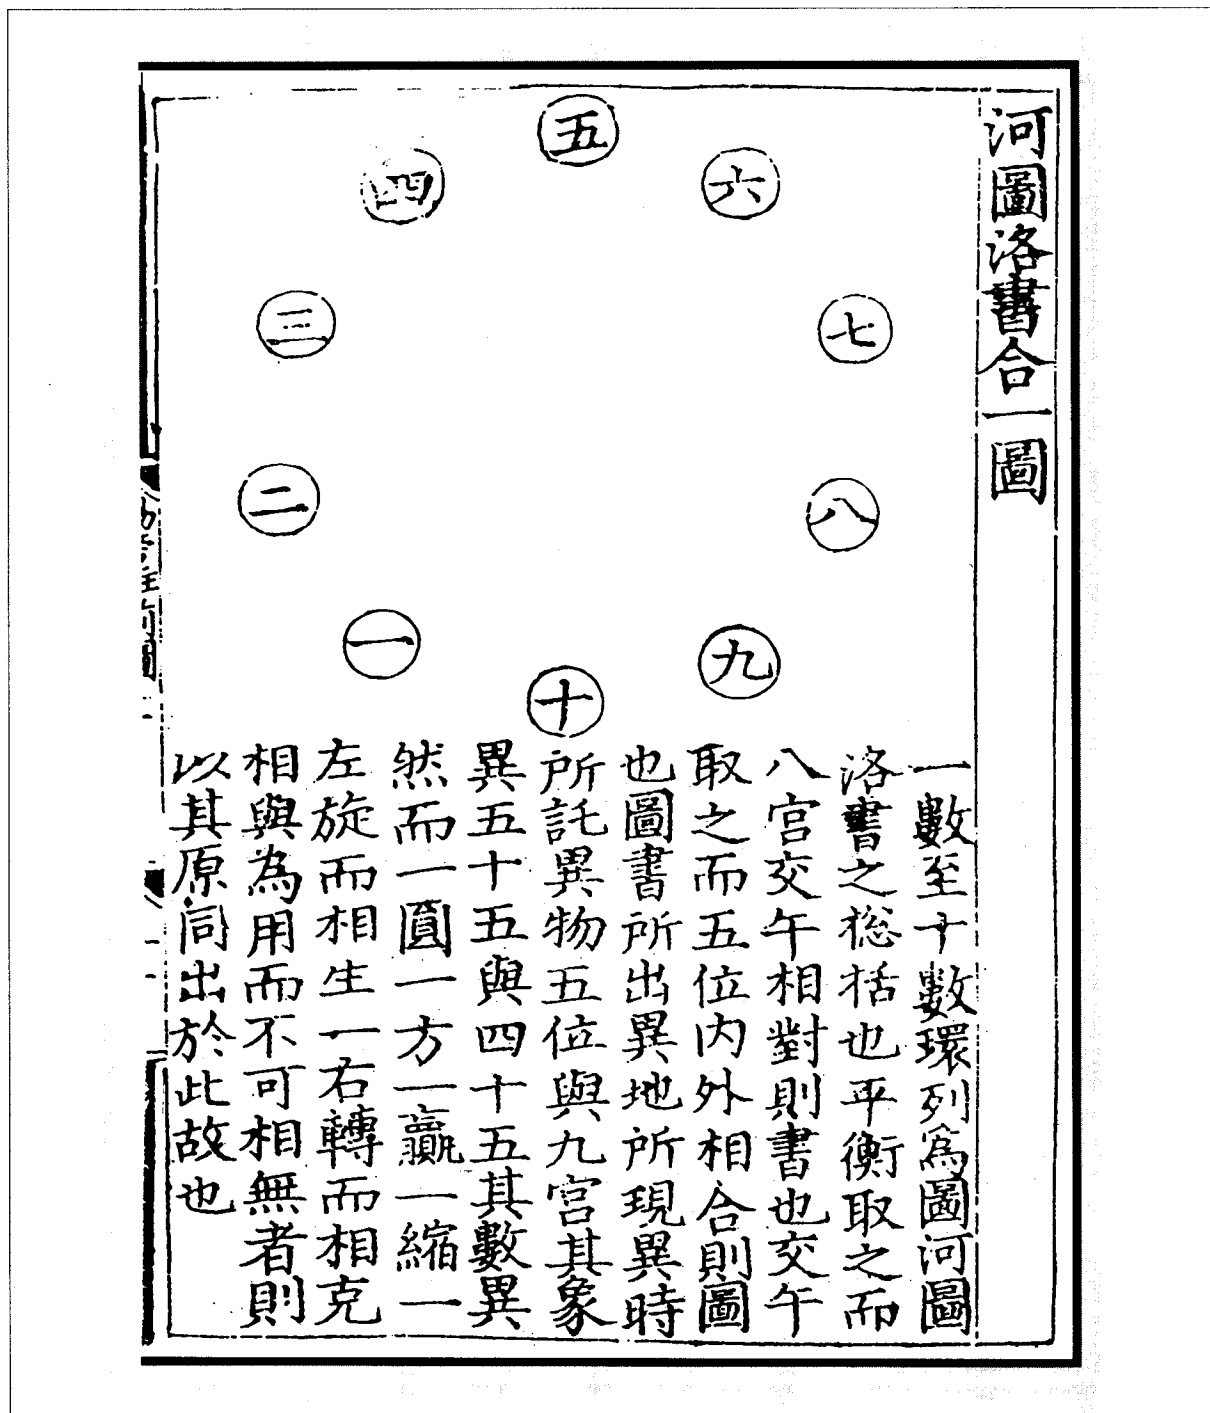 河圖洛書合一圖
五
四
六
三
七
二
八
一
九
十
一數至十數環列爲圖河圖
洛書之総括也平衡取之而
八宮交午相對則書也交午
取之而五位内外相合則圖
也圖書所出異地所現異時
所託異物五位與九宮其象
異五十五與四十五其數異
然而一圓一方一贏一縮一
左旋而相生一右轉而相克
相與為用而不可相無者則
以其原同出於此故也